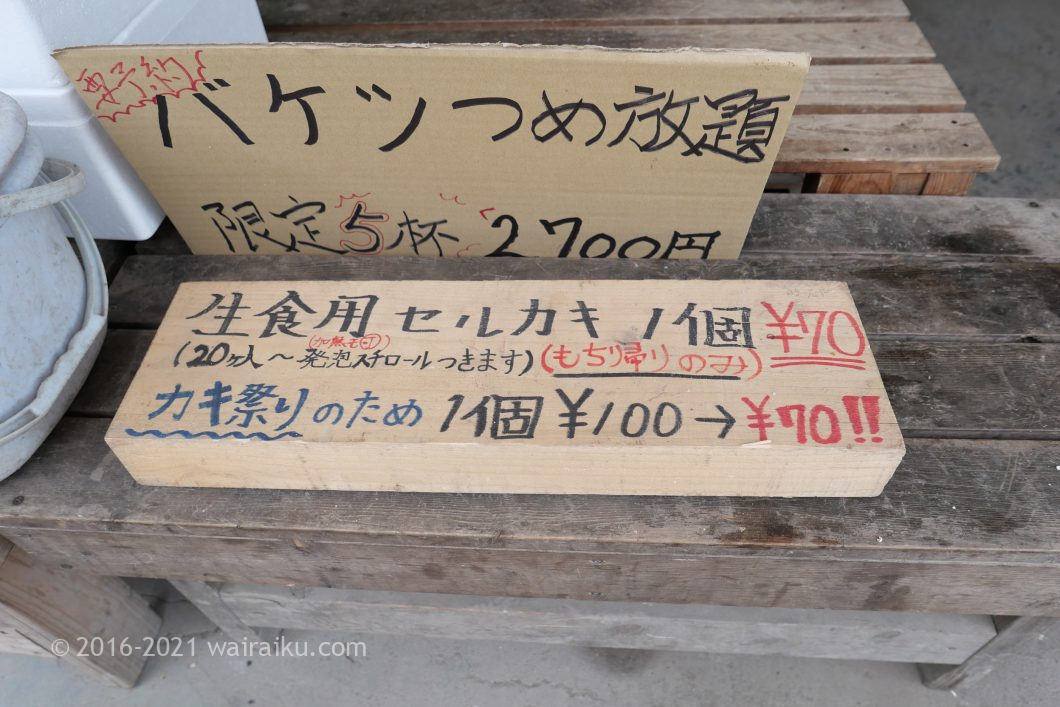 要予約
バケツつめ放題
限定5杯 2700円
生食用 セルカキ 1個 ¥70
(加熱もOK)
(20ヶ入~発泡スチロールつきます) (もちり帰りのみ)
カキ祭りのため 1個 ¥100→¥70!!
© 2016-2021 wairaiku.com